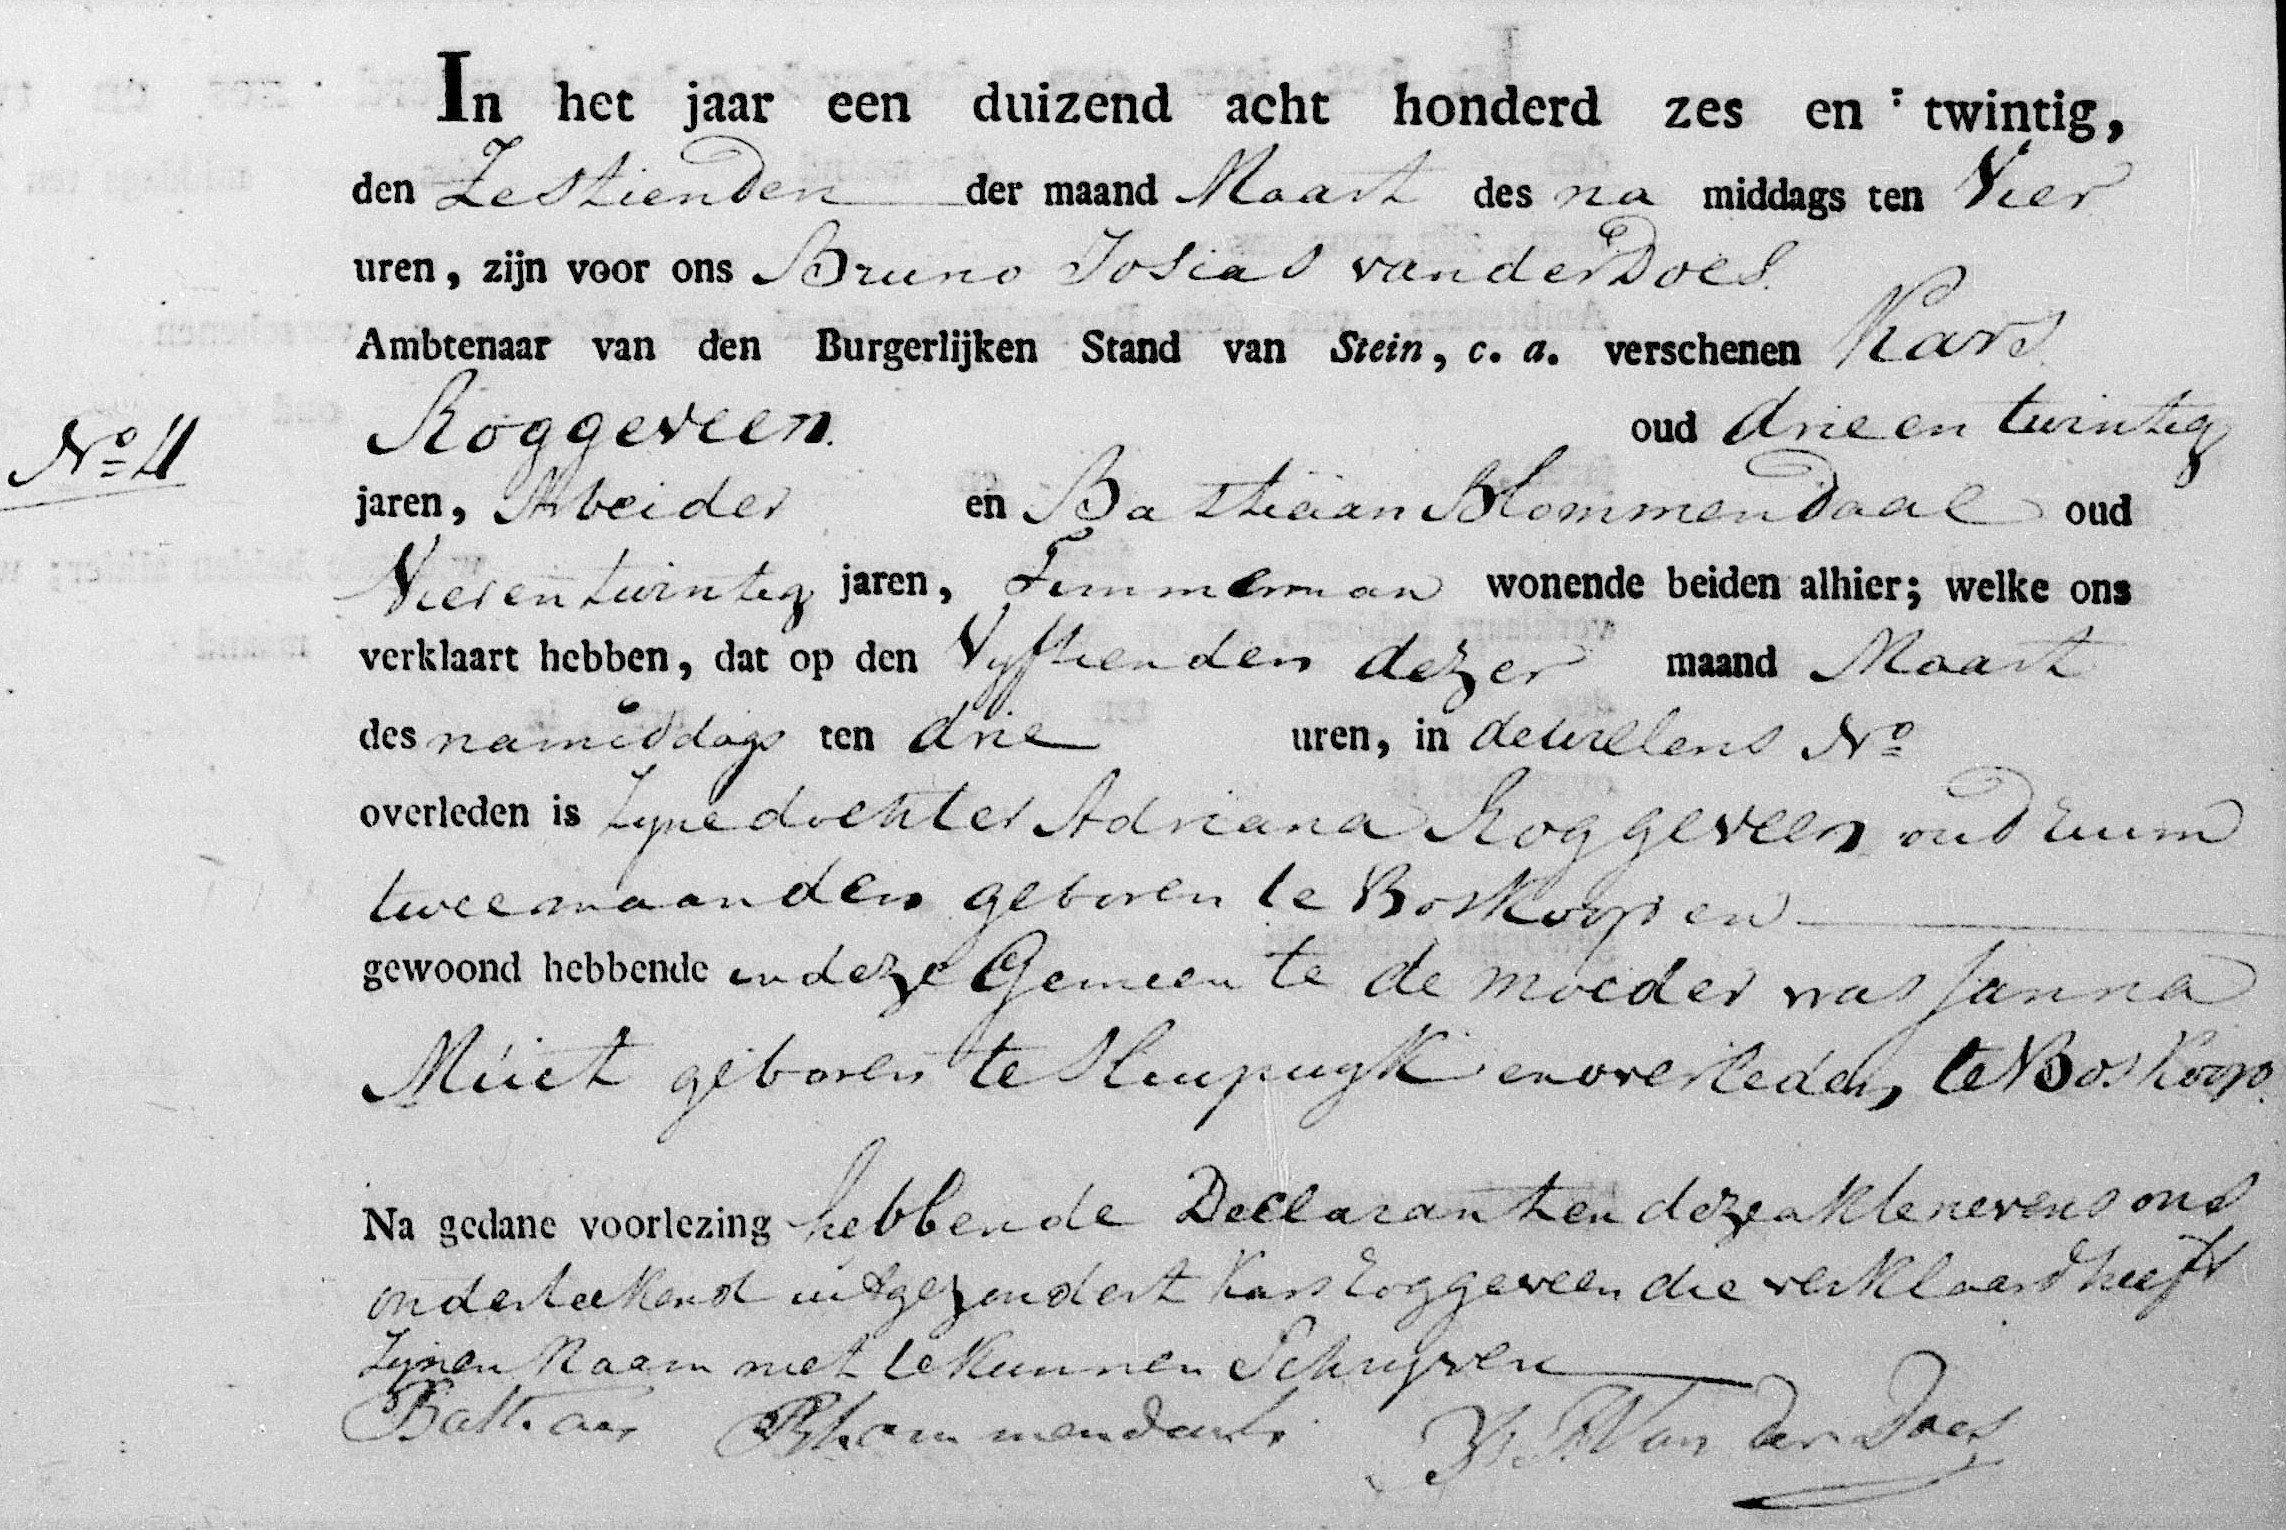 In het jaar een duizend acht honderd zes en twintig,
den Zestienden der maand Maart des na middags ten Vier
uren, zijn voor ons Bruno Josias van der Does
Ambtenaar van den Burgerlijken Stand van Stein, c. a. verschenen Kars
No 4 Roggeveen. oud drie en twintig
jaren, Arbeider en Bastiaan Blommendaal oud
Vier en twintig jaren, Timmerman wonende beiden alhier; welke ons
verklaart hebben, dat op den Vyftienden dezer maand Maart
des namiddags ten drie uren, in de No
overleden is zyne dochter Adriana Roggeveen oud ruim
twee maanden geboren te Boskoop en
gewoond hebbende in deze Gemeente de moeder was Janna
geboren te Sluipwyk en overleden te Boskoop.
Na gedane voorlezing hebben de Declaranten deze akte nevens ons
onderteekend uitgezondert Kars Roggeveen die verklaard heeft
zynen Naam niet te kunnen Schryven
Bastiaan Blommendaal B. J. Van der Does